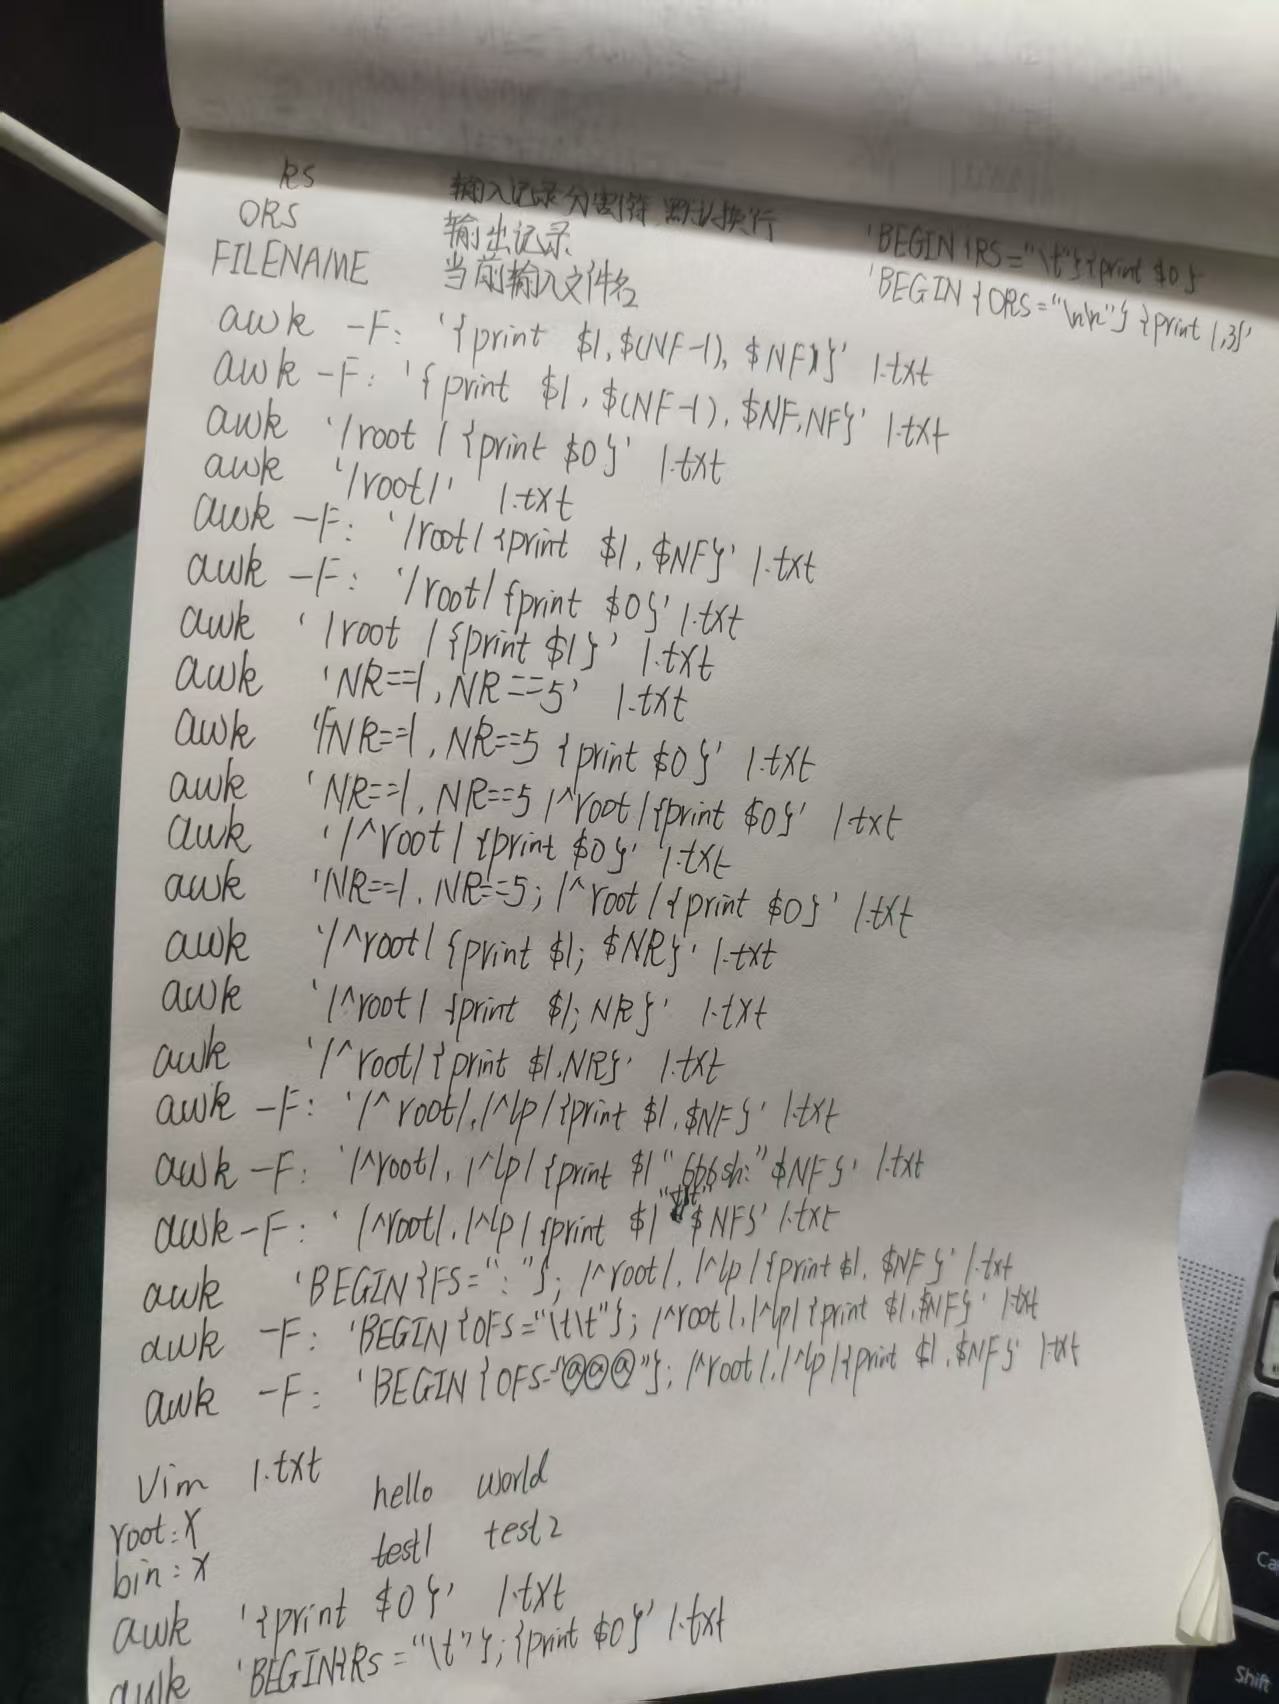 RS 输入记录分割符 默认换行 'BEGIN{RS="\t"}{print $0}
ORS 输出记录 'BEGIN{ORS="\n\n"} {print 1,3}'
FILENAME 当前输入文件名
awk -F: '{print $1,$(NF-1), $NF}' 1.txt
awk -F: '{print $1,$(NF-1), $NF,NF}' 1.txt
awk '/root/{print $0}' 1.txt
awk '/root/' 1.txt
awk -F: '/root/{print $1,$NF}' 1.txt
awk -F: '/root/{print $0}' 1.txt
awk '/root/{print $1}' 1.txt
awk 'NR==1,NR==5' 1.txt
awk 'NR==1,NR==5 {print $0}' 1.txt
awk 'NR==1,NR==5 /^root/{print $0}' 1.txt
awk '/^root/{print $0}' 1.txt
awk 'NR==1,NR==5; /^root/{print $0}' 1.txt
awk '/^root/{print $1; $NR}' 1.txt
awk '/^root/ {print $1; NR}' 1.txt
awk '/^root/{print $1,NR}' 1.txt
awk -F: '/^root/,/^lp/{print $1,$NF}' 1.txt
awk -F: '/^root/, /^lp/{print $1 "666sh:" $NF}' 1.txt
awk -F: '/^root/,/^lp/{print $1 $NF}' 1.txt
awk 'BEGIN{FS=":"}; /^root/, /^lp/{print $1, $NF}' 1.txt
awk -F: 'BEGIN{OFS="\t\t"}; /^root/,/^lp/{print $1,$NF}' 1.txt
awk -F: 'BEGIN{OFS="@@@"}; /^root/,/^lp/{print $1,$NF}' 1.txt
Vim 1.txt
hello world
root:X
test1 test2
bin:X
awk '{print $0}' 1.txt
awk 'BEGIN{RS="\t"};{print $0}' 1.txt